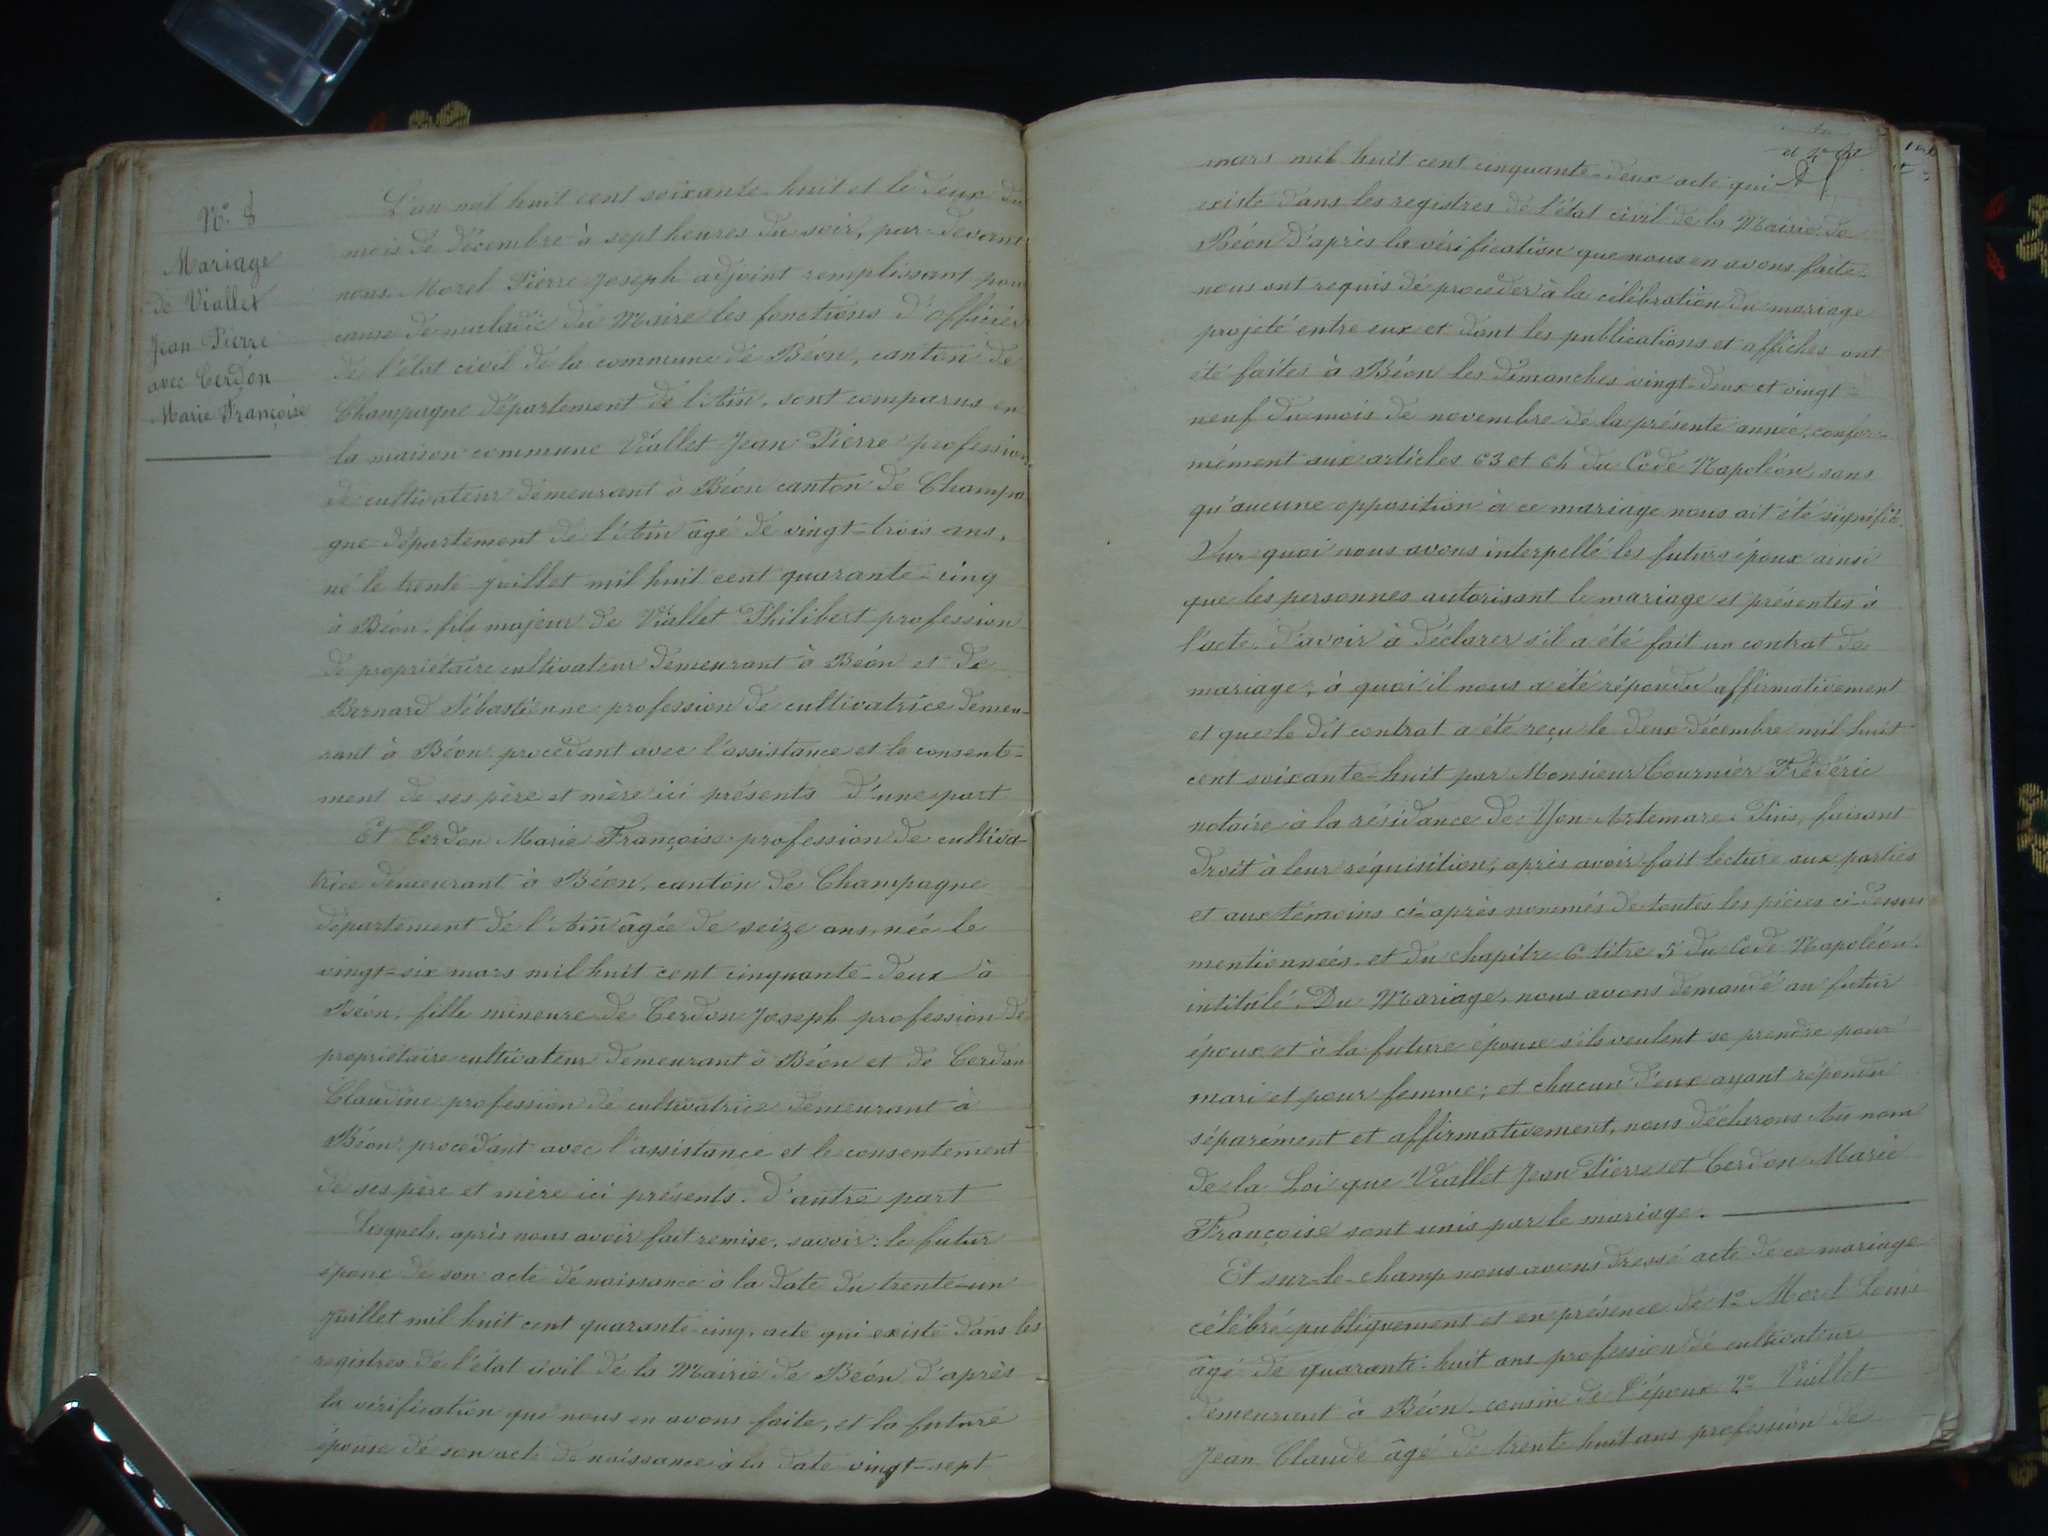 N° 8
Mariage
de Viallet
Jean Pierre
avec Cerdon
Marie Françoise
L'an mil huit cent soixante-huit et le deux du
mois de décembre à sept heures du soir, par-devant
nous Morel Pierre Joseph adjoint remplissant pour
cause de maladie du Maire les fonctions d'officier
de l'état civil de la commune de Béon, canton de
Champagne département de l'Ain, sont comparus en
la maison commune Viallet Jean Pierre profession
de cultivateur demeurant à Béon canton de Champa
gne département de l'Ain âgé de vingt-trois ans,
né le trente Juillet mil huit cent quarante-cinq
à Béon, fils majeur de Viallet Philibert profession
de propriétaire cultivateur demeurant à Béon et de
Bernard Sébastienne profession de cultivatrice demeu-
rant à Béon procédant avec l'assistance et le consente-
ment de ses père et mère ici présents d'une part
Et Cerdon Marie Françoise profession de cultiva-
trice demeurant à Béon, canton de Champagne
département de l'Ain âgée de seize ans, née le
vingt-six mars mil huit cent cinquante-deux à
Béon, fille mineure de Cerdon Joseph profession de
propriétaire cultivateur demeurant à Béon et de Cerdon
Claudine profession de cultivatrice demeurant à
Béon, procédant avec l'assistance et le consentement
de ses père et mère ici présents. d'autre part
Lesquels, après nous avoir fait remise, savoir: le futur
époux de son acte de naissance à la date du trente-un
Juillet mil huit cent quarante-cinq, acte qui existe dans les
registres de l'état civil de la Mairie de Béon d'après
la vérification que nous en avons faite, et la future
épouse de son acte de naissance à la date vingt-sept
mars mil huit cent cinquante-deux acte qui
existe dans les registres de l'état civil de la Mairie de
Béon d'après la vérification que nous en avons faite
nous ont requis de procéder à la célébration du mariage
projeté entre eux et dont les publications et affiches ont
été faites à Béon les dimanches vingt-deux et vingt-
neuf du mois de novembre de la présente année, confor-
mément aux articles 63 et 64 du Code Napoléon, sans
qu'aucune opposition à ce mariage nous ait été signifié.
Sur quoi nous avons interpellé les futurs époux ainsi
que les personnes autorisant le mariage et présentes à
l'acte, d'avoir à déclarer s'il a été fait un contrat de
mariage, à quoi il nous a été répondu affirmativement
et que le dit contrat a été reçu le deux décembre mil huit
cent soixante-huit par Monsieur Cournier Frédéric
notaire à la résidance de Yon-Artemare. Puis, faisant
droit à leur réquisition, après avoir fait lecture aux parties
et aux témoins ci-après nommés de toutes les pièces ci-dessus
mentionnées et du chapitre 6 titre 5 du Code Napoléon
intitulé, Du Mariage, nous avons demandé au futur
époux et à la future épouse s'ils veulent se prendre pour
mari et pour femme; et chacun d'eux ayant répondu
séparément et affirmativement, nous déclarons Au nom
de la Loi que Viallet Jean Pierre et Cerdon Marie
Françoise sont unis par le mariage.
Et sur-le-champ nous avons dressé acte de ce mariage
célébré publiquement et en présence de 1° Morel Louis
âgé de quarante-huit ans profession de cultivateur
demeurant à Béon cousin de l'époux 2° Viallet
Jean Claude âgé de trente huit ans profession de